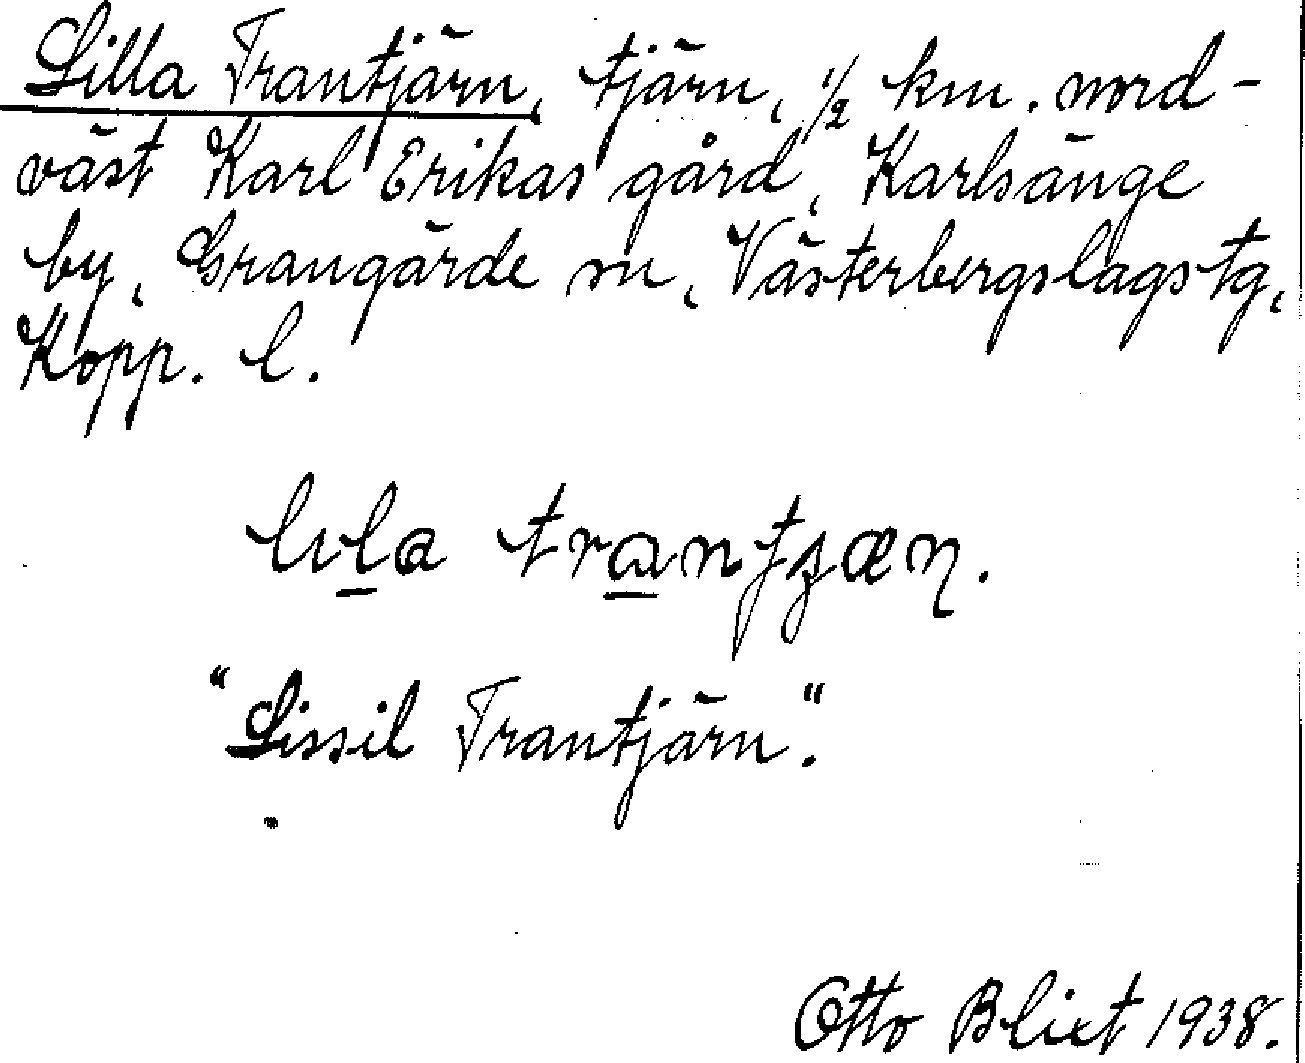 Lilla Trantjärn, tjärn, 1/2 km. nord-
väst Karl Erikas gård, Karlsänge
by, Grangärde sn, Västerbergslags tg,
Kopp. l.
"Lissil Trantjärn".
Otto Blixt 1938.